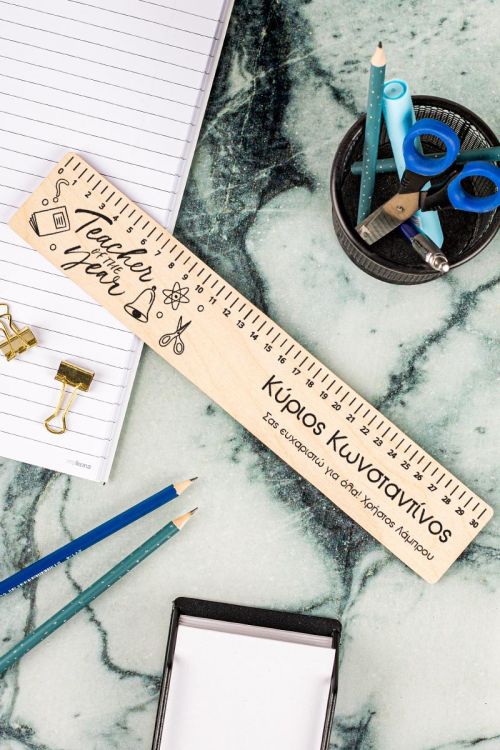 0 1 2 3 4 5 6 7 8 9 10 11 12 13 14 15 16 17 18 19 20 21 22 23 24 25 26 27 28 29 30
Teacher
OF THE
Year
Κύριος Κωνσταντίνος
Σας ευχαριστώ για όλα! Χρήστος Λάμπρου